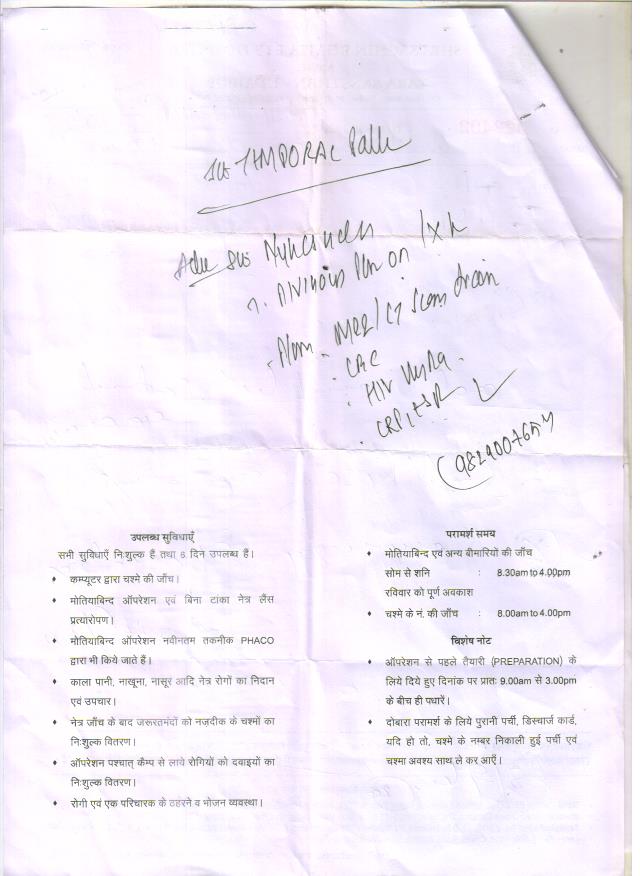 TEMPORAL
MRI/CT Scan
CBC
HIV
CRP, ESR
उपलब्ध सुविधाएँ
सभी सुविधाएँ निःशुल्क हैं तथा 6 दिन उपलब्ध हैं।
♦ कम्प्यूटर द्वारा चश्मे की जाँच।
♦ मोतियाबिन्द ऑपरेशन एवं बिना टांका नेत्र लैंस
प्रत्यारोपण।
♦ मोतियाबिन्द ऑपरेशन नवीनतम तकनीक PHACO
द्वारा भी किये जाते हैं।
♦ काला पानी, नाखूना, नासूर आदि नेत्र रोगों का निदान
एवं उपचार।
♦ नेत्र जाँच के बाद जरूरतमंदों को नज़दीक के चश्मों का
निःशुल्क वितरण।
♦ ऑपरेशन पश्चात् कैम्प से लाये रोगियों को दवाइयों का
निःशुल्क वितरण।
♦ रोगी एवं एक परिचारक के ठहरने व भोजन व्यवस्था।
परामर्श समय
♦ मोतियाबिन्द एवं अन्य बीमारियों की जाँच
सोम से शनि : 8.30am to 4.00pm
रविवार को पूर्ण अवकाश
♦ चश्मे के नं. की जाँच : 8.00am to 4.00pm
विशेष नोट
♦ ऑपरेशन से पहले तैयारी (PREPARATION) के
लिये दिये हुए दिनांक पर प्रातः 9.00am से 3.00pm
के बीच ही पधारें।
♦ दोबारा परामर्श के लिये पुरानी पर्ची, डिस्चार्ज कार्ड,
यदि हो तो, चश्मे के नम्बर निकाली हुई पर्ची एवं
चश्मा अवश्य साथ ले कर आएँ।